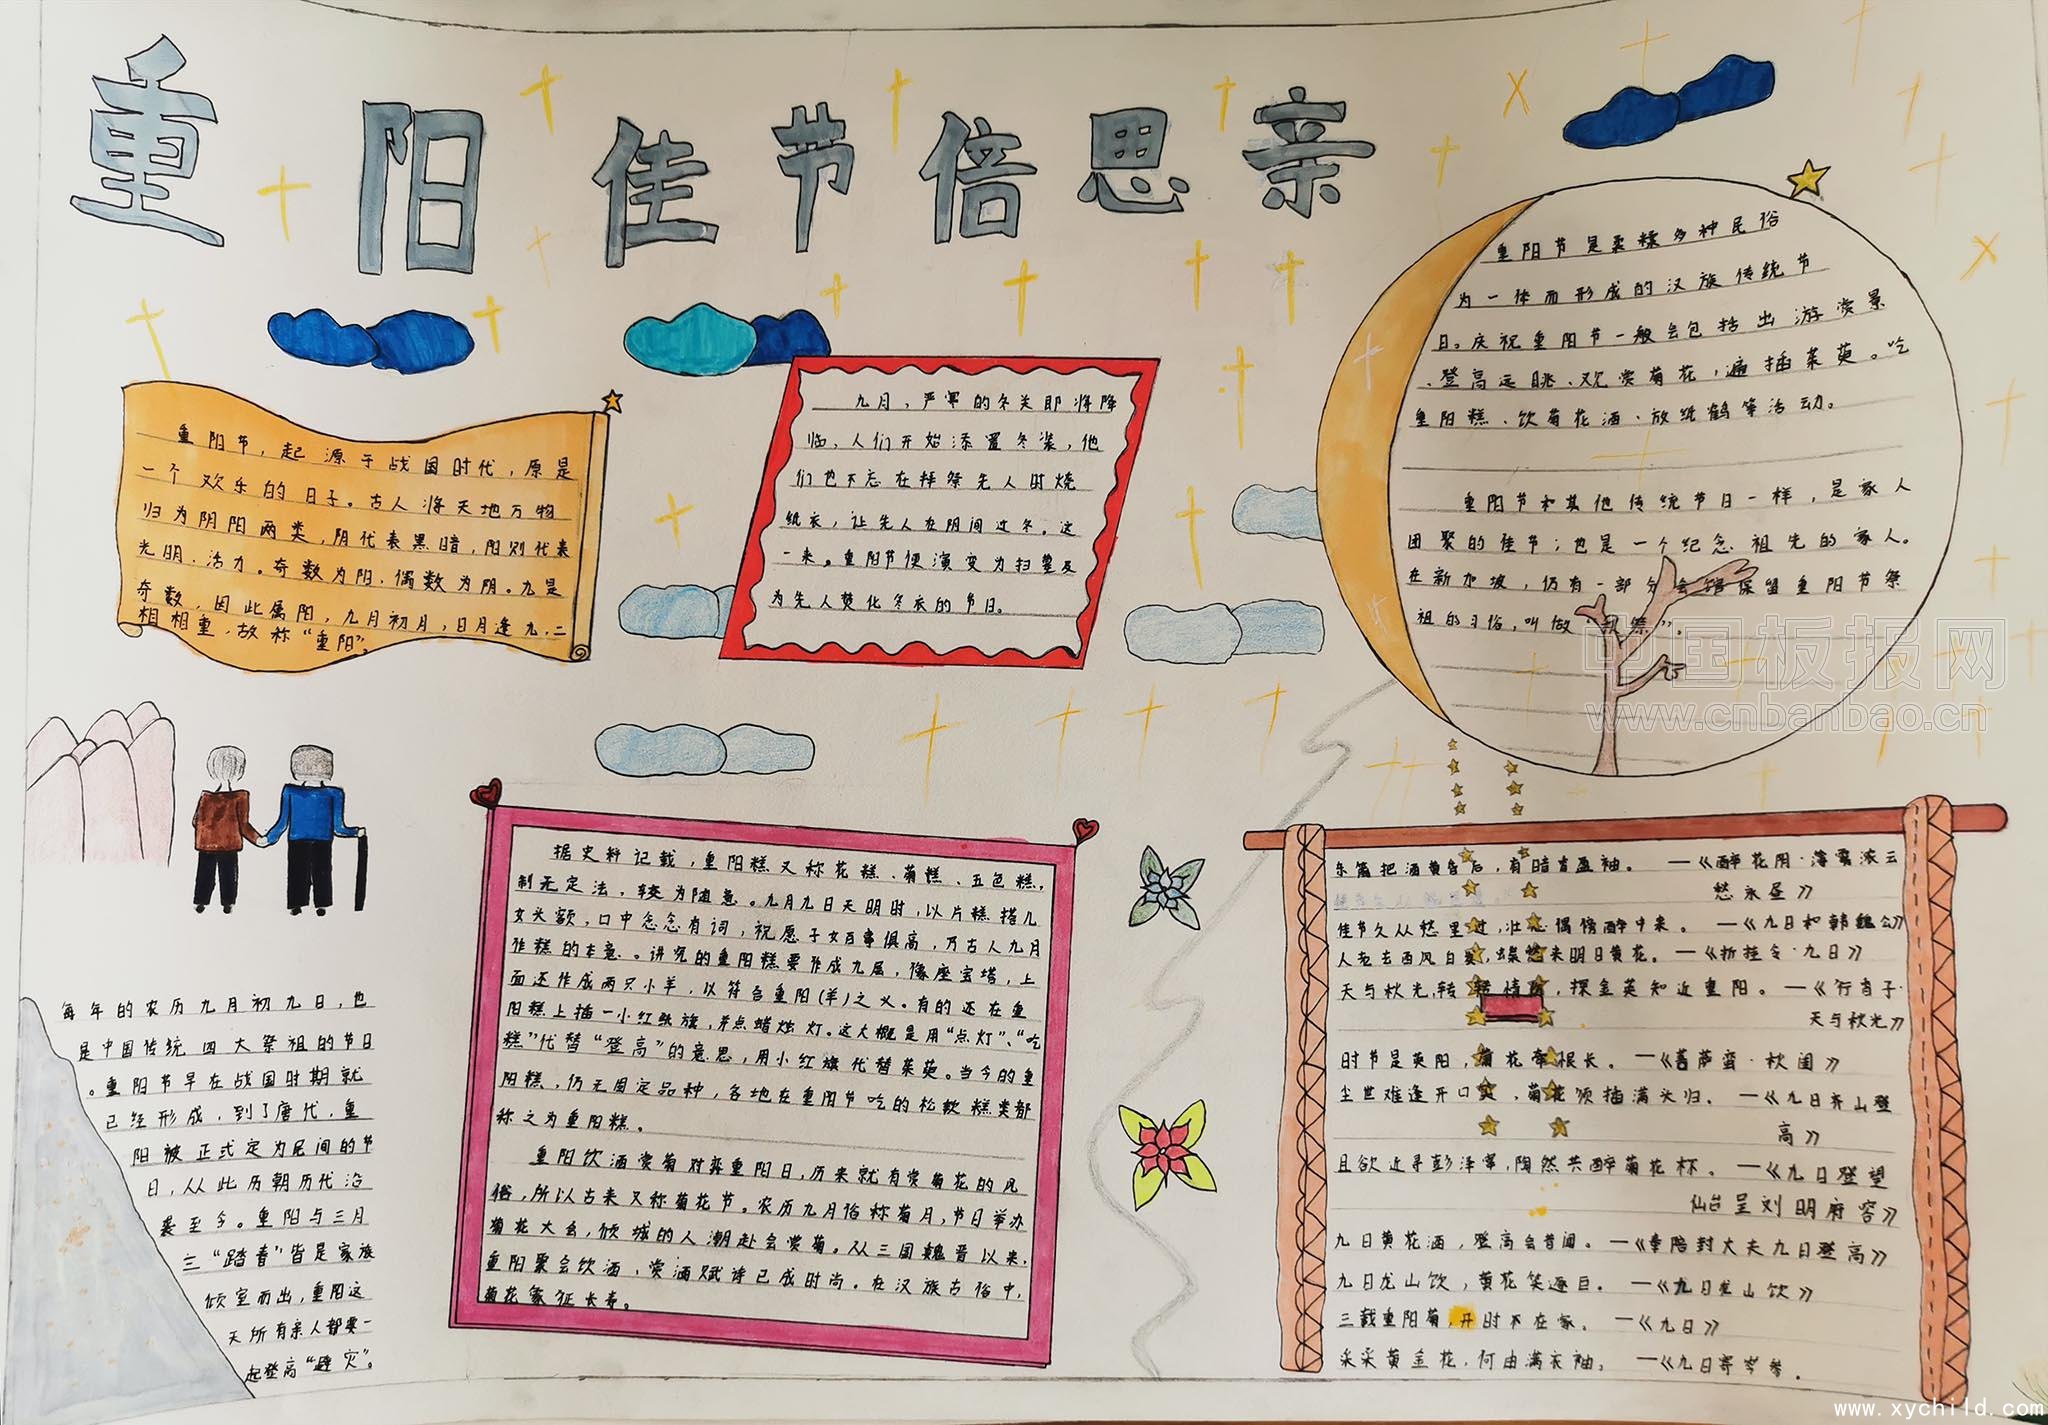 重阳佳节倍思亲
重阳节，起源于战国时代，原是
一个欢乐的日子。古人将天地万物
归为阴阳两类，阴代表黑暗，阳则代表
光明、活力。奇数为阳、偶数为阴。九是
奇数，因此属阳，九月初月，日月逢九，二
相相重，故称“重阳”。
九月，严寒的冬天即将降
临，人们开始添置冬装，他
们也不忘在拜祭先人时烧
纸衣，让先人在阴间过冬。这
一来。重阳节便演变为扫墓及
为先人焚化冬衣的节日。
重阳节是柔糅多种民俗
为一体而形成的汉族传统节
日。庆祝重阳节一般会包括出游赏景
、登高远眺、观赏菊花，遍插茱萸。吃
重阳糕、饮菊花酒、放纸鹤等活动。
重阳节和其他传统节日一样，是家人
团聚的佳节；也是一个纪念祖先的家人。
在新加坡，仍有一部分会馆保留重阳节祭
祖的习俗，叫做“秋祭”。
中国板报网
www.cnbanbao.cn
每年的农历九月初九日，也
是中国传统四大祭祖的节日
。重阳节早在战国时期就
已经形成，到了唐代，重
阳被正式定为民间的节
日，从此历朝历代沿
袭至今。重阳与三月
三“踏春”皆是家族
倾室而出，重阳这
天所有亲人都要一
起登高“避灾”。
据史料记载，重阳糕又称花糕、菊糕、五色糕，
制无定法，较为随意。九月九日天明时，以片糕搭儿
女头额，口中念念有词，祝愿子女百事俱高，乃古人九月
作糕的本意。讲究的重阳糕要作成九层，像座宝塔，上
面还作成两只小羊，以符合重阳(羊)之义。有的还在重
阳糕上插一小红纸旗，并点蜡烛灯。这大概是用“点灯”、“吃
糕”代替“登高”的意思，用小红旗代替茱萸。当今的重
阳糕，仍无固定品种，各地在重阳节吃的松软糕类都
称之为重阳糕。
重阳饮酒赏菊对弈重阳日，历来就有赏菊花的风
俗，所以古来又称菊花节。农历九月俗称菊月，节日举办
菊花大会，倾城的人潮赴会赏菊。从三国魏晋以来，
重阳聚会饮酒、赏酒赋诗已成时尚。在汉族古俗中，
菊花象征长寿。
东篱把酒黄昏后，有暗香盈袖。 —《醉花阴·薄雾浓云
愁永昼》
佳节久从愁里过，壮心偶傍醉中来。 —《九日和韩魏公》
人老去西风白发，蝶愁来明日黄花。 —《折桂令·九日》
天与秋光，转转情伤，探金英知近重阳。 —《行香子·
天与秋光》
时节是重阳，菊花牵恨长。 —《菩萨蛮·秋闺》
尘世难逢开口笑，菊花须插满头归。 —《九日齐山登
高》
且欲近寻彭泽宰，陶然共醉菊花杯。 —《九日登望
仙台呈刘明府容》
九日黄花酒，登高会昔闻。 —《奉陪封大夫九日登高》
九日龙山饮，黄花笑逐臣。 —《九日龙山饮》
三载重阳菊，开时不在家。 —《九日》
采采黄金花，何由满衣袖。 —《九日寄岑参。
www.xychild.com